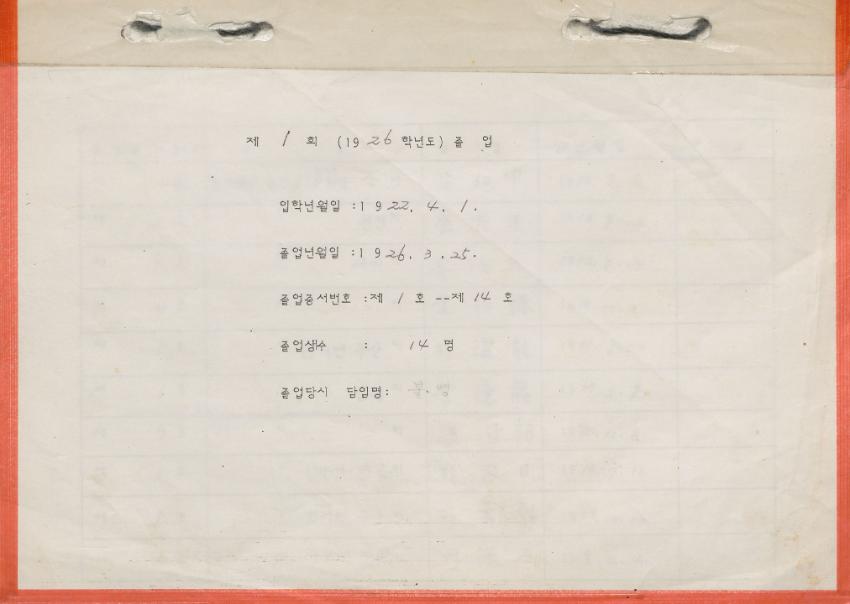 제 1 회 (1926학년도) 졸 업
입학년월일 : 1922. 4. 1.
졸업년월일 : 1926. 3. 25.
졸업증서번호 : 제 1 호 --제 14 호
졸업생수 : 14 명
졸업당시 담임명: 불명